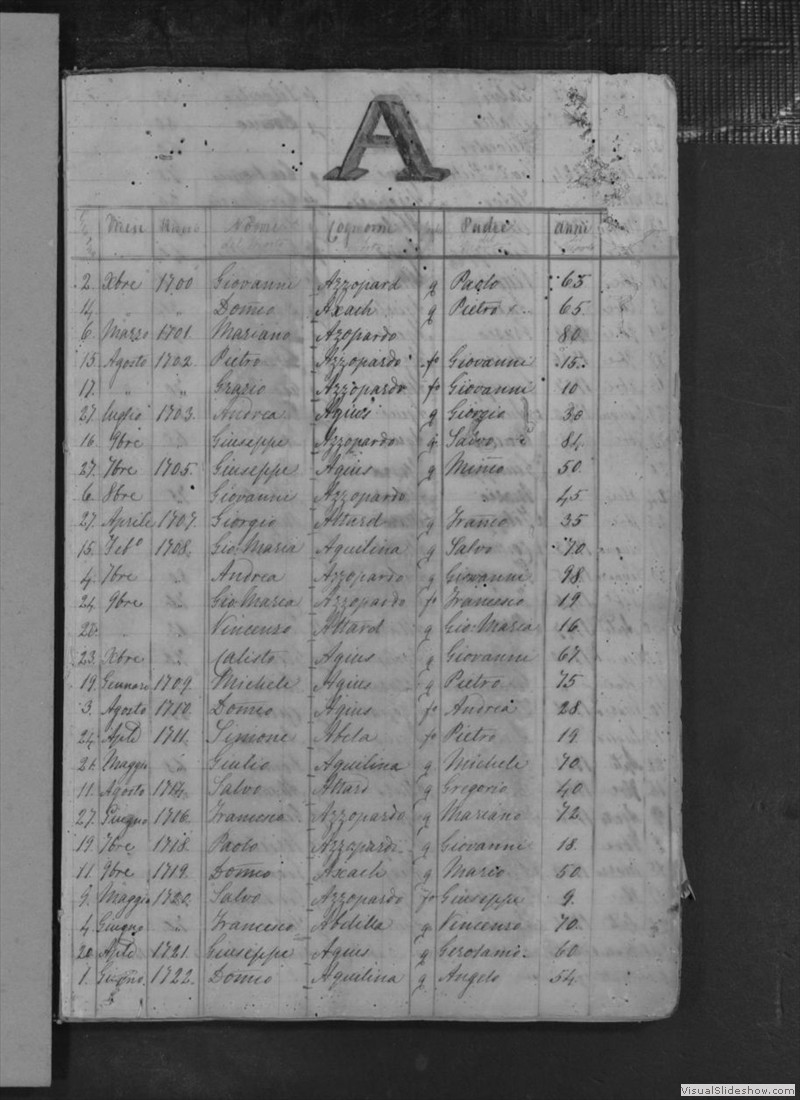 A
Mese Anno Nome Cognome Padre anni
2. Xbre 1700 Giovanni Azzopard q Paolo 63
14 " " Domco Axach q Pietro 65
6. Marzo 1701. Mariano Azopardo 80
15. Agosto 1702. Pietro Azzopardo fo Giovanni 15.
17. " " Grazio Azzopardo fo Giovanni 10
27. luglio 1703. Andrea Agius q Giorgio 30
16. 9bre " Giuseppe Azzopardo q Salvo 84
27. 7bre 1705. Giuseppe Agius q Minco 50.
6. 8bre " Giovanni Azzopardo 45
27. Aprile 1707. Giorgio Attard q Franco 35
15. Febo 1708. Gio: Maria Aquilina q Salvo 70.
4. 7bre " Andrea Azzopardo q Giovanni 98.
24. 9bre " Gio Maria Azzopardo fo Francesco 19
28. " Vincenzo Attard q Gio: Maria 16.
23. Xbre " Calisto Agius q Giovanni 67.
19. Gennaro 1709. Michele Agius q Pietro 75
3. Agosto 1710. Domco Agius fo Andrea 28
24. Aple 1711. Simone Abela fo Pietro 19
Maggio " Giulio Aquilina q Michele 70.
11. Agosto 1714. Salvo Attard q Gregorio 40
27. Giugno 1716. Francesco Azzopardo q Mariano 72
19. 7bre 1718. Paolo Azzopardo q Giovanni 18.
11. 9bre 1719. Domco Axach q Marco 50
9. Maggio 1720. Salvo Azzopardo fo Giuseppe 9.
4 Giugno " Francesco Abdilla q Vincenzo 70.
20 Aple 1721. Giuseppe Agius q Gerolamo. 60
1. Giugno 1722. Domco Aquilina q Angelo 54.
VisualSlideshow.com